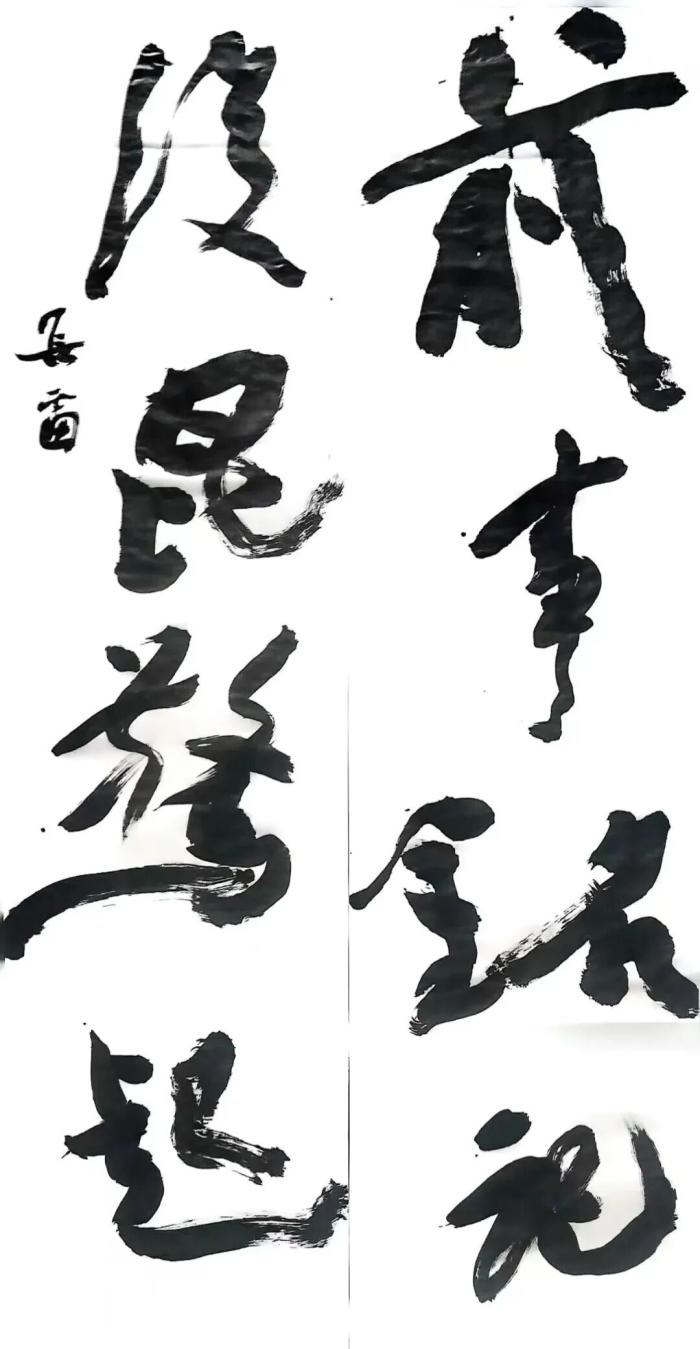 前事銘記
後昆驚起
長雷